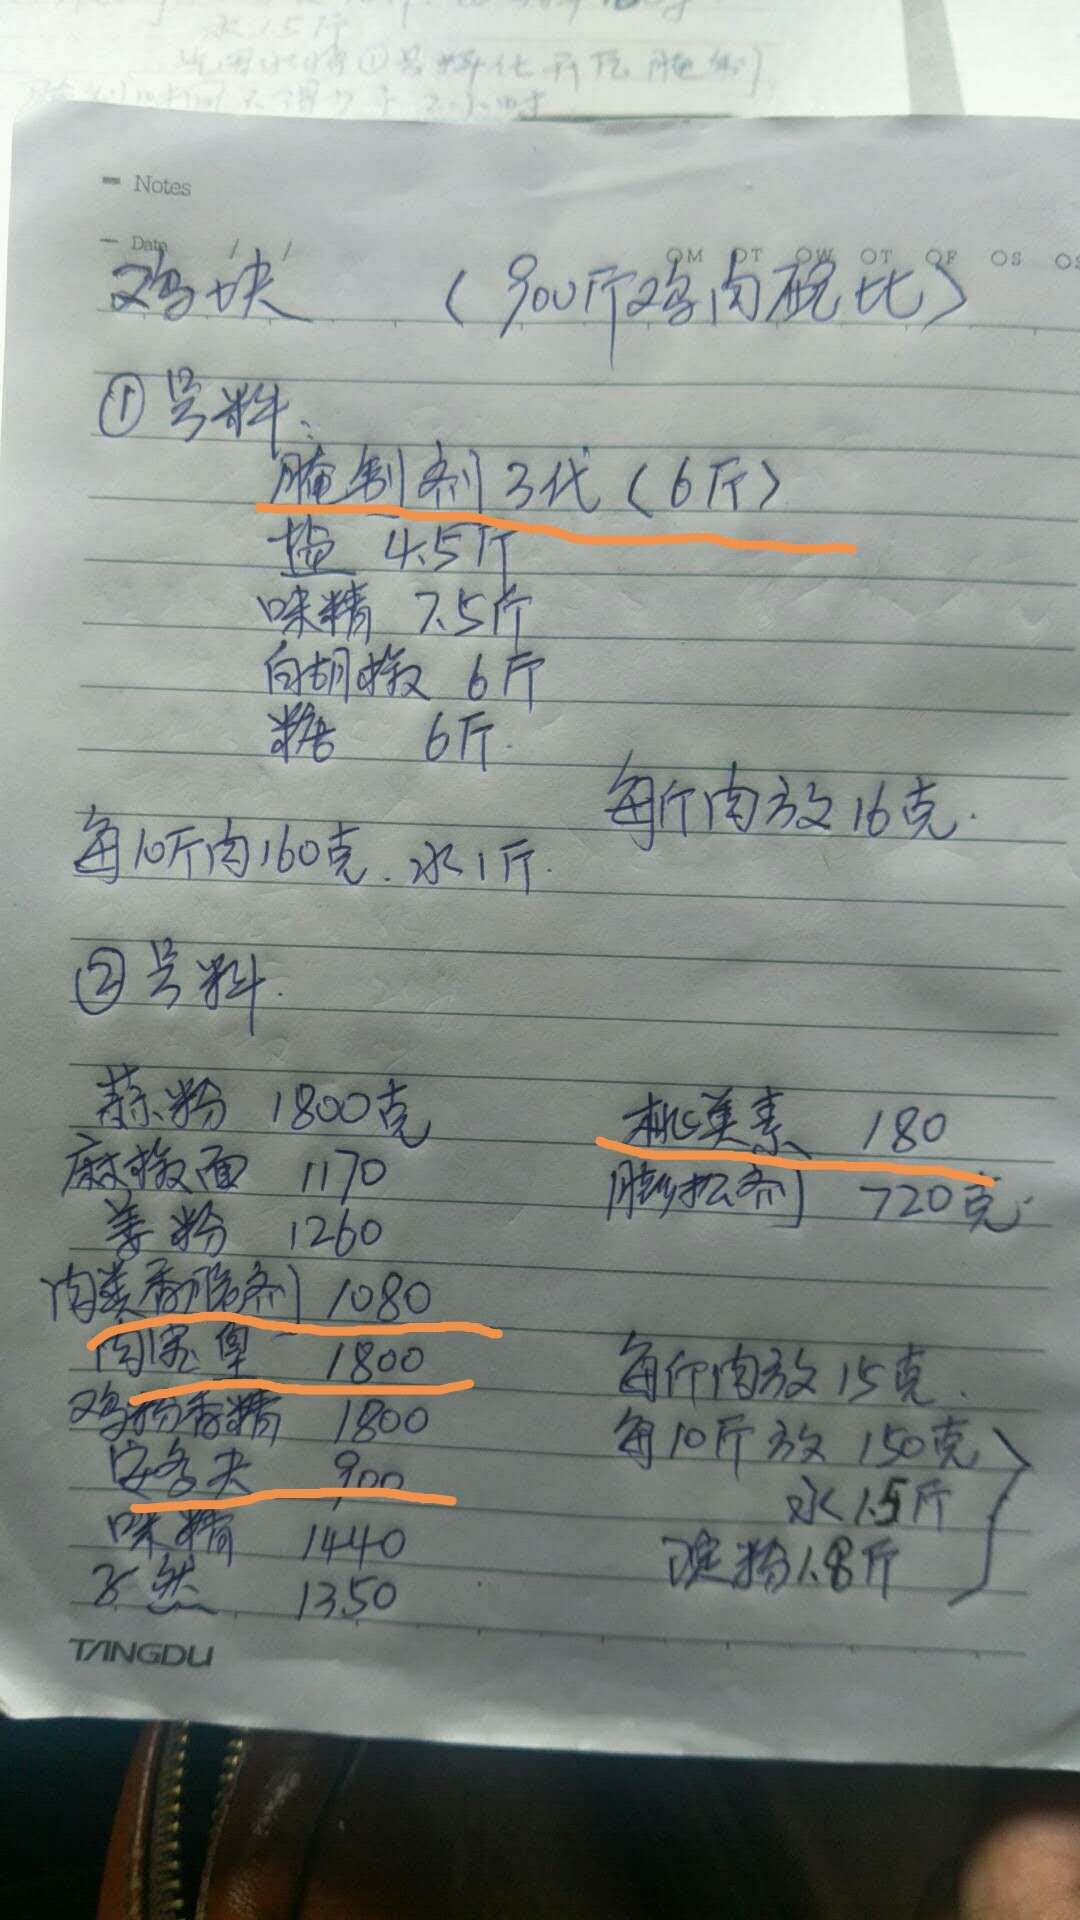 水1.5斤
Notes
Date / /
OM OT OW OT OF OS OS
鸡块 (900斤鸡肉配比)
①号料:
腌制剂3代(6斤)
盐 4.5斤
味精 7.5斤
白胡椒 6斤
糖 6斤.
每斤肉放16克.
每10斤肉160克.水1斤.
②号料.
蒜粉 1800克
麻椒面 1170
姜粉 1260
肉类香脆剂 1080
肉宝皇 1800
鸡粉香精 1800
安多夫 900
味精 1440
孜然 1350
桃美素 180
膨松剂 720克.
每斤肉放15克.
每10斤放150克
水1.5斤
淀粉1.8斤
TANGDU